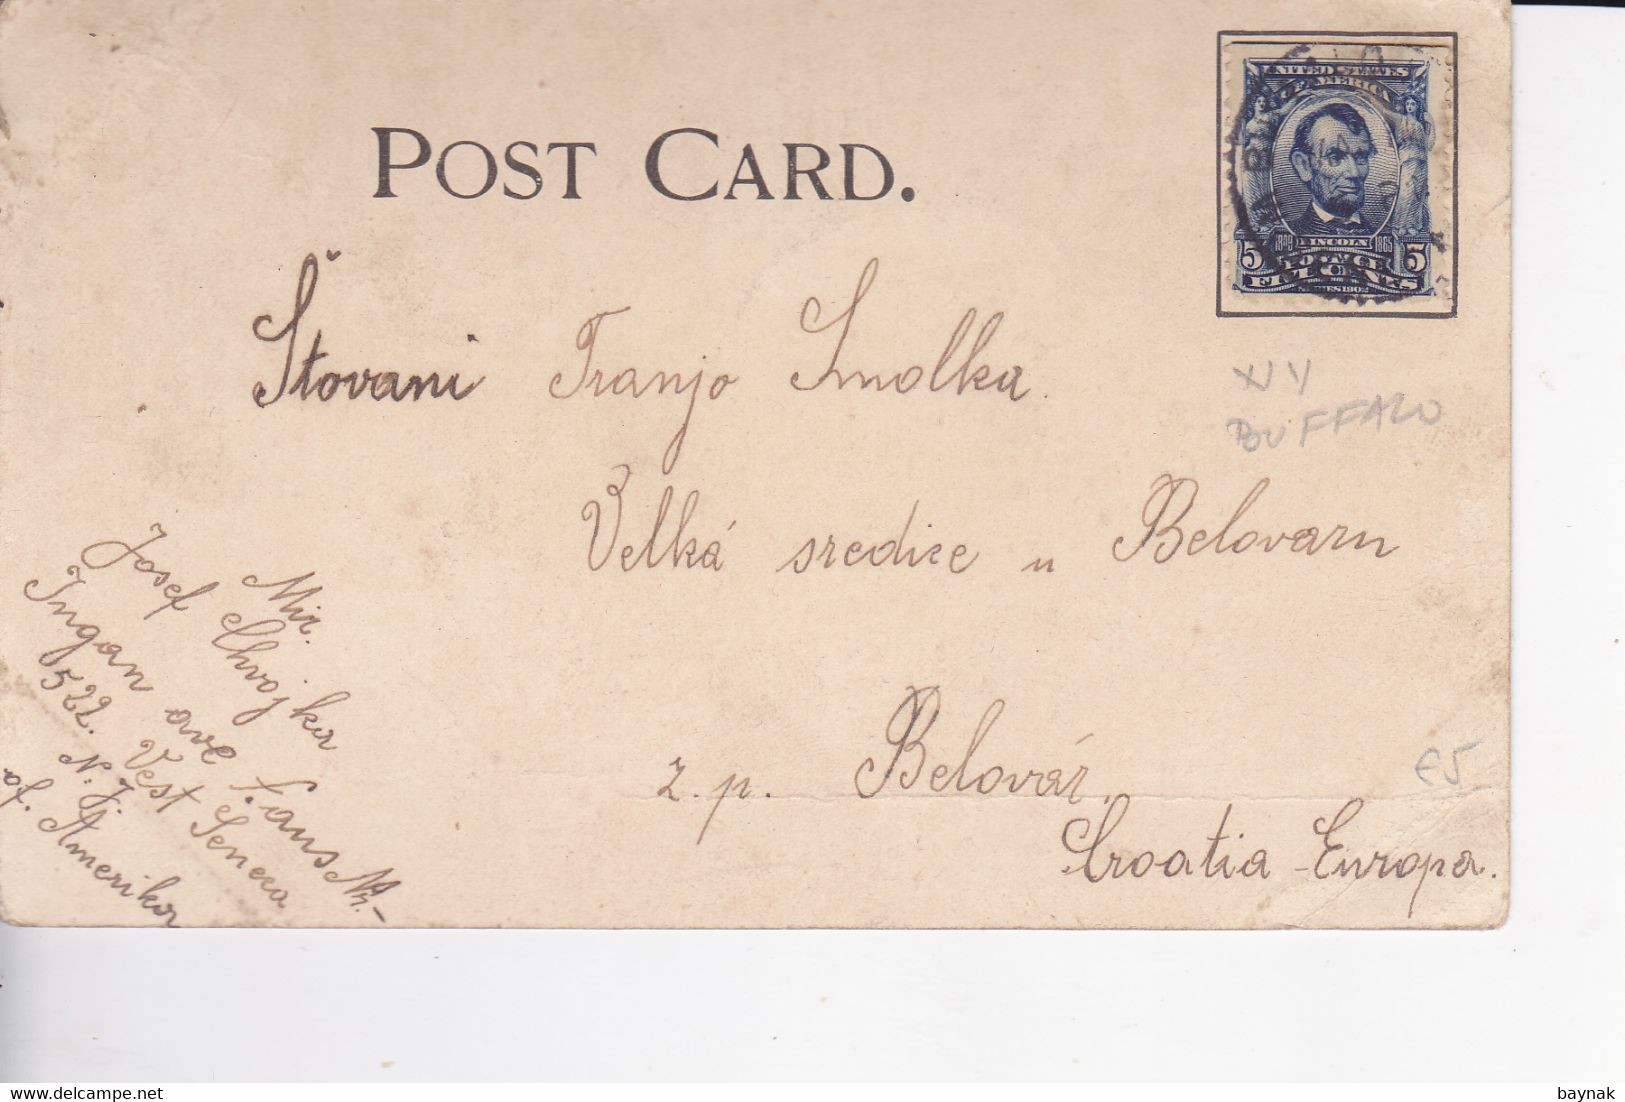 POST CARD.
UNITED STATES
OF AMERICA
1809 LINCOLN 1865
5 POSTAGE 5
FIVE CENTS
SERIES 1902
Štovani Franjo Smolka
N Y
BUFFALO
Velká sredice u Belovaru
z. p. Belovár.
Croatia-Europa.
€5
Mir.
Josef Chvojka
Ingan ave
522. Vest Seneca
N. J.
of. Amerika
baynak